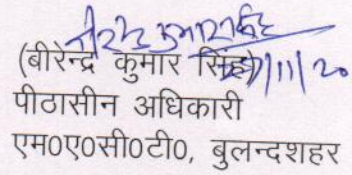 (बीरेन्द्र कुमार सिंह)
पीठासीन अधिकारी
एम0ए0सी0टी0, बुलन्दशहर